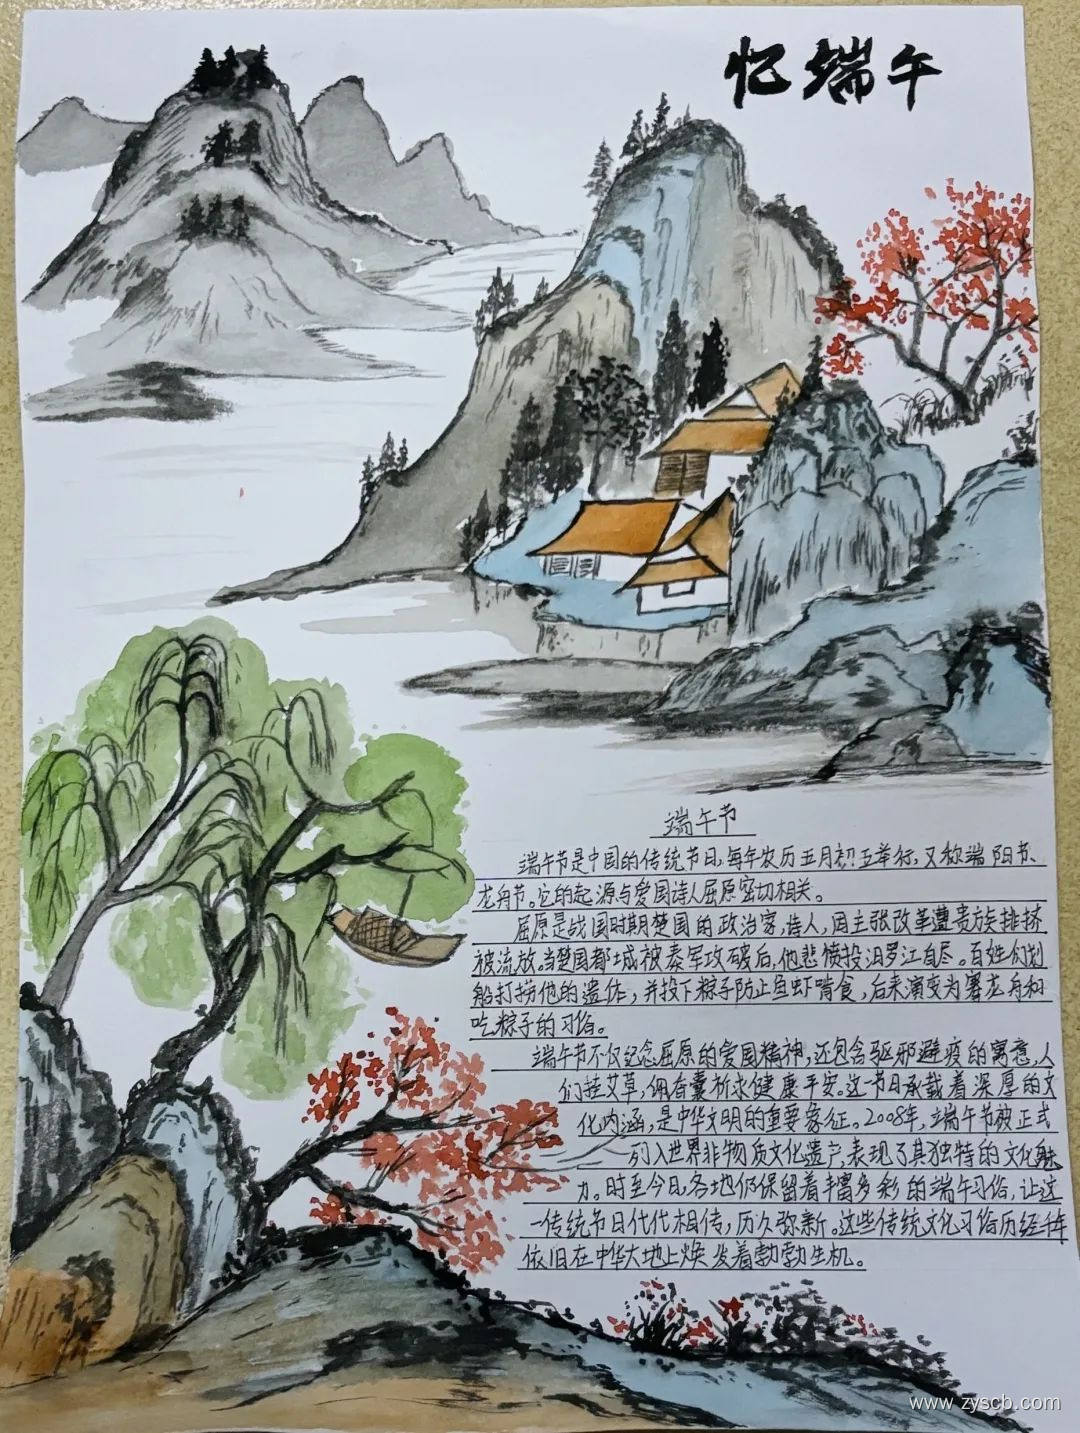 忆端午
端午节
端午节是中国的传统节日,每年农历五月初五举行,又称端阳节、
龙舟节。它的起源与爱国诗人屈原密切相关。
屈原是战国时期楚国的政治家,诗人,因主张改革遭贵族排挤
被流放。当楚国都城被秦军攻破后,他悲愤投汨罗江自尽。百姓们划
船打捞他的遗体,并投下粽子防止鱼虾啃食,后来演变为赛龙舟和
吃粽子的习俗。
端午节不仅纪念屈原的爱国精神,还包含驱邪避疫的寓意,人
们挂艾草,佩香囊祈求健康平安。这一节日承载着深厚的文
化内涵,是中华文明的重要象征。2008年,端午节被正式
列入世界非物质文化遗产,表现了其独特的文化魅
力。时至今日,各地仍保留着丰富多彩的端午习俗,让这
一传统节日代代相传,历久弥新。这些传统文化习俗历经千年
依旧在中华大地上焕发着勃勃生机。
www.zyscb.com